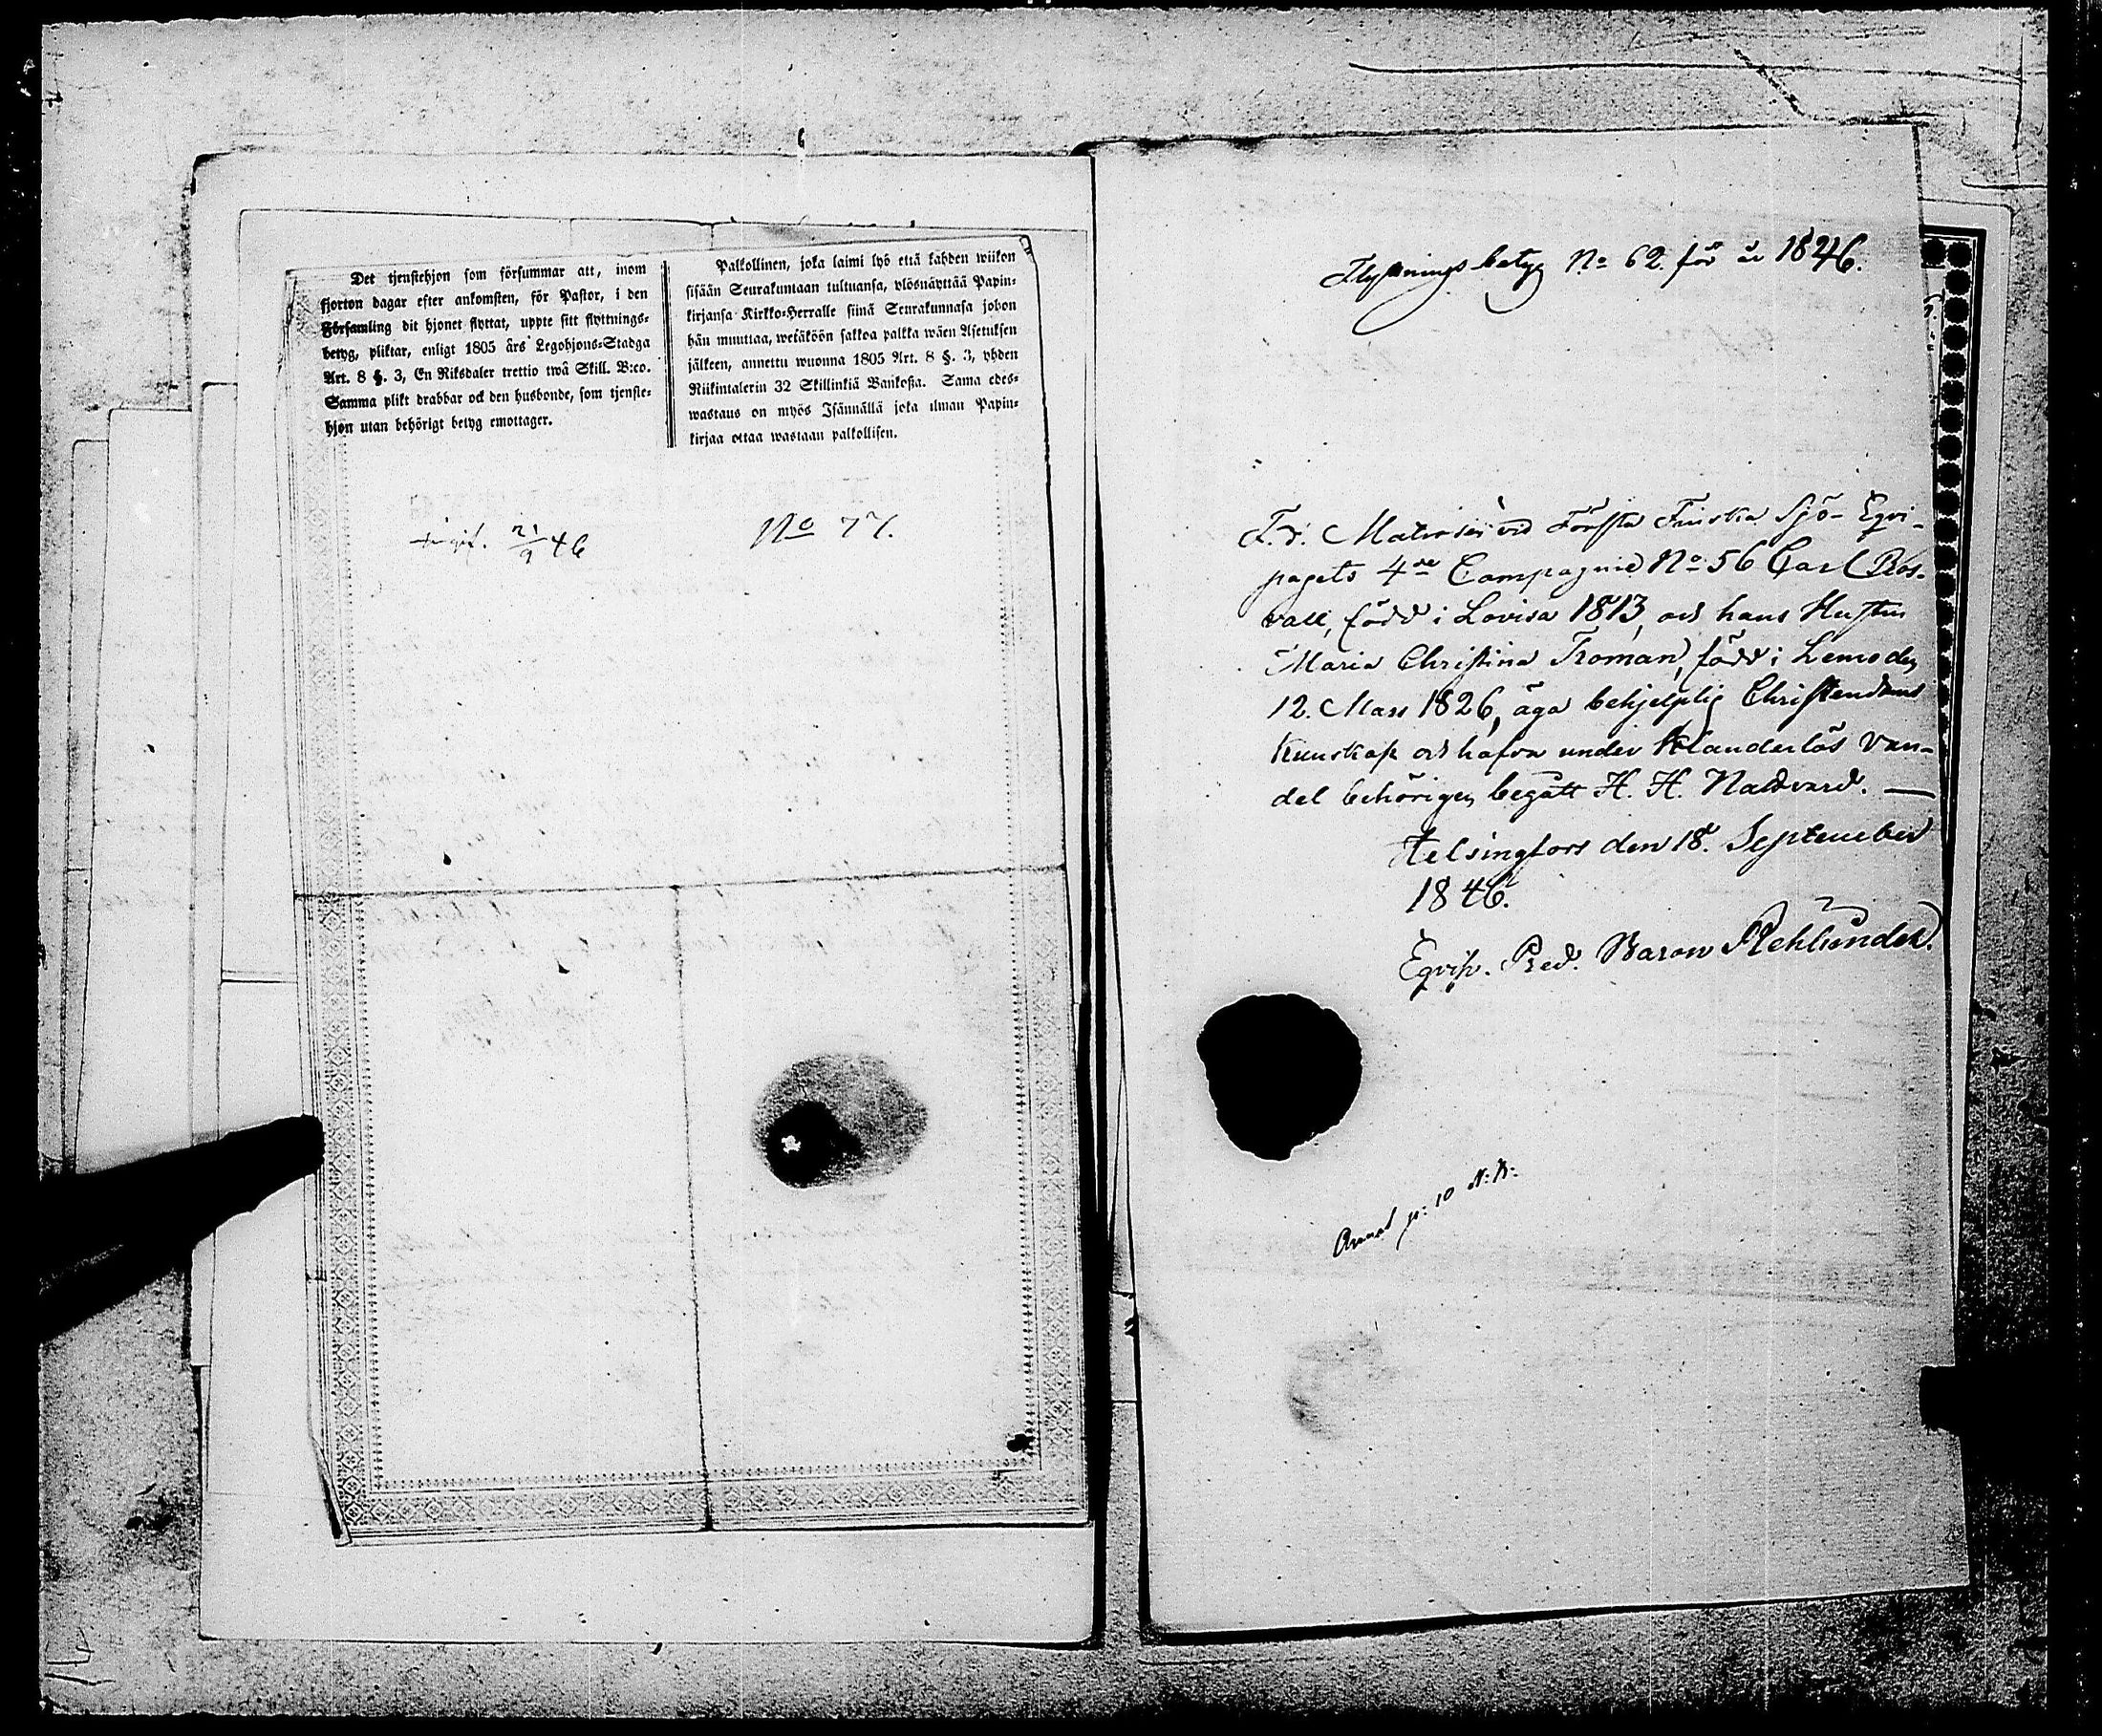 Det tjenstehjon som försummar att, inom
fjorton dagar efter ankomsten, för Pastor, i den
Församling dit hjonet flyttat, uppte sitt flyttnings-
betyg, pliktar, enligt 1805 års Legohjons-Stadga
Art. 8 §. 3, En Riksdaler trettio twå Skill. B:co.
Samma plikt drabbar ock den husbonde, som tjenste-
hjon utan behörigt betyg emottager.
Palkollinen, joka laimi lyö että kahden wiikon
sisään Seurakuntaan tultuansa, ylösnäyttää Papin-
kirjansa Kirkko-Herralle siinä Seurakunnasa johon
hän muuttaa, wetäköön sakkoa palkka wäen Asetuksen
jälkeen, annettu wuonna 1805 Art. 8 §. 3, yhden
Riikintalerin 32 Skillinkiä Bankosta. Sama edes-
wastaus on myös Isännällä joka ilman Papin-
kirjaa ottaa wastaan palkollisen.
ingif. 21/9 46
No 77.
Flyttnings betyg No 62. för år 1846.
F. d. Matrosen vid Första Finska Sjö-Eqvi-
pagets 4de Compagnie No 56 Carl Ros-
vall, född i Lovisa 1813, och hans Hustru
Maria Christina Troman, född i Lemo den
12. Mars 1826, äga behjelplig Christendoms
kunskap och hafva under klanderlös van-
del behörigen begått H. H. Nattvard. —
Helsingfors den 18. September
1846.
Eqvip. Pred. Baron Rehbinder.
p: 10 N: B: